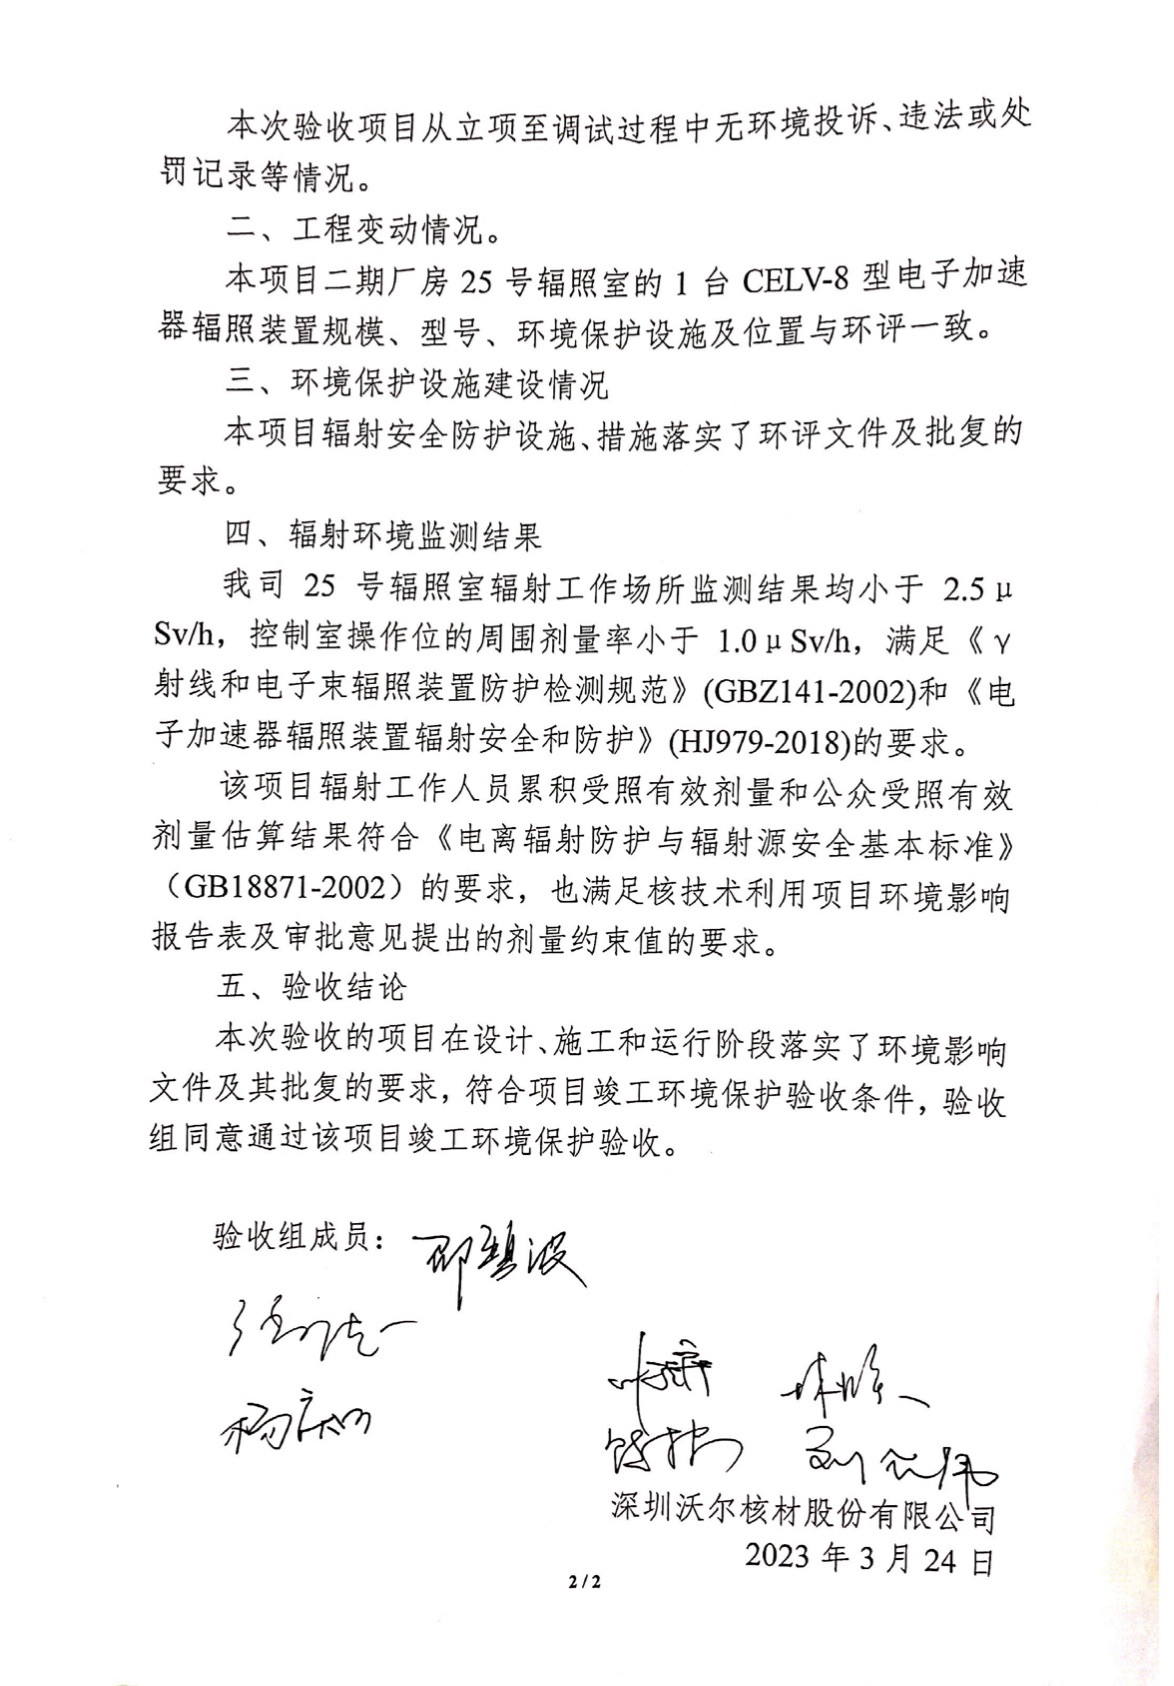 本次验收项目从立项至调试过程中无环境投诉、违法或处
罚记录等情况。
二、工程变动情况。
本项目二期厂房 25 号辐照室的 1 台 CELV-8 型电子加速
器辐照装置规模、型号、环境保护设施及位置与环评一致。
三、环境保护设施建设情况
本项目辐射安全防护设施、措施落实了环评文件及批复的
要求。
四、辐射环境监测结果
我司 25 号辐照室辐射工作场所监测结果均小于 2.5μ
Sv/h，控制室操作位的周围剂量率小于 1.0μSv/h，满足《γ
射线和电子束辐照装置防护检测规范》(GBZ141-2002)和《电
子加速器辐照装置辐射安全和防护》(HJ979-2018)的要求。
该项目辐射工作人员累积受照有效剂量和公众受照有效
剂量估算结果符合《电离辐射防护与辐射源安全基本标准》
（GB18871-2002）的要求，也满足核技术利用项目环境影响
报告表及审批意见提出的剂量约束值的要求。
五、验收结论
本次验收的项目在设计、施工和运行阶段落实了环境影响
文件及其批复的要求，符合项目竣工环境保护验收条件，验收
组同意通过该项目竣工环境保护验收。
验收组成员：
深圳沃尔核材股份有限公司
2023 年 3 月 24 日
2/2